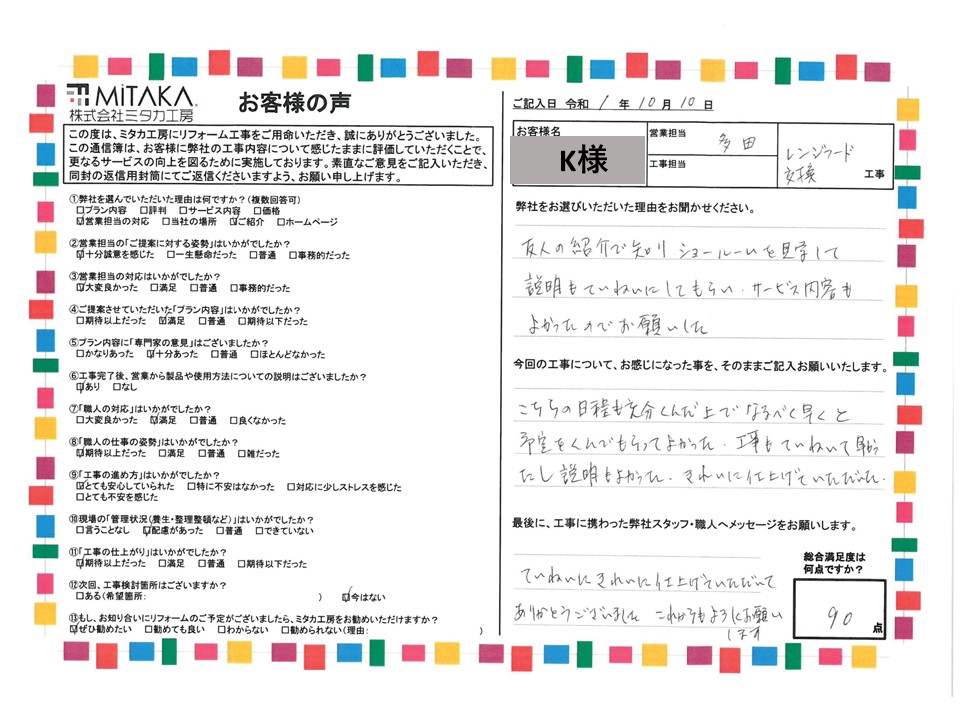 MiTAKA.
株式会社ミタカ工房
お客様の声
この度は、ミタカ工房にリフォーム工事をご用命いただき、誠にありがとうございました。
この通信簿は、お客様に弊社の工事内容について感じたままに評価していただくことで、
更なるサービスの向上を図るために実施しております。素直なご意見をご記入いただき、
同封の返信用封筒にてご返信くださいますよう、お願い申し上げます。
①弊社を選んでいただいた理由は何ですか？(複数回答可)
□プラン内容 □評判 □サービス内容 □価格
☑営業担当の対応 □当社の場所 ☑ご紹介 □ホームページ
②営業担当の「ご提案に対する姿勢」はいかがでしたか？
☑十分誠意を感じた □一生懸命だった □普通 □事務的だった
③営業担当の対応はいかがでしたか？
☑大変良かった □満足 □普通 □事務的だった
④ご提案させていただいた「プラン内容」はいかがでしたか？
□期待以上だった ☑満足 □普通 □期待以下だった
⑤プラン内容に「専門家の意見」はございましたか？
□かなりあった ☑十分あった □普通 □ほとんどなかった
⑥工事完了後、営業から製品や使用方法についての説明はございましたか？
☑あり □なし
⑦「職人の対応」はいかがでしたか？
□大変良かった ☑満足 □普通 □良くなかった
⑧「職人の仕事の姿勢」はいかがでしたか？
☑期待以上だった □満足 □普通 □雑だった
⑨「工事の進め方」はいかがでしたか？
☑とても安心していられた □特に不安はなかった □対応に少しストレスを感じた
□とても不安を感じた
⑩現場の「管理状況(養生・整理整頓など)」はいかがでしたか？
□言うことなし ☑配慮があった □普通 □できていない
⑪「工事の仕上がり」はいかがでしたか？
☑期待以上だった □満足 □普通 □期待以下だった
⑫次回、工事検討箇所はございますか？
□ある(希望箇所: ) ☑今はない
⑬もし、お知り合いにリフォームのご予定がございましたら、ミタカ工房をお勧めいただけますか？
☑ぜひ勧めたい □勧めても良い □わからない □勧められない(理由: )
ご記入日 令和 1 年 10 月 10 日
お客様名
K様
営業担当 多田
工事担当
レンジフード
交換 工事
弊社をお選びいただいた理由をお聞かせください。
友人の紹介で知り ショールームを見学して
説明もていねいにしてもらい、サービス内容も
よかったのでお願いした
今回の工事について、お感じになった事を、そのままご記入お願いいたします。
こちらの日程も充分くんだ上でなるべく早くと
予定をくんでもらってよかった。工事もていねいで早かっ
たし説明もよかった。きれいに仕上げていただいた。
最後に、工事に携わった弊社スタッフ・職人へメッセージをお願いします。
ていねいにきれいに仕上げていただいて
ありがとうございました これからもよろしくお願い
します
総合満足度は
何点ですか？
90 点